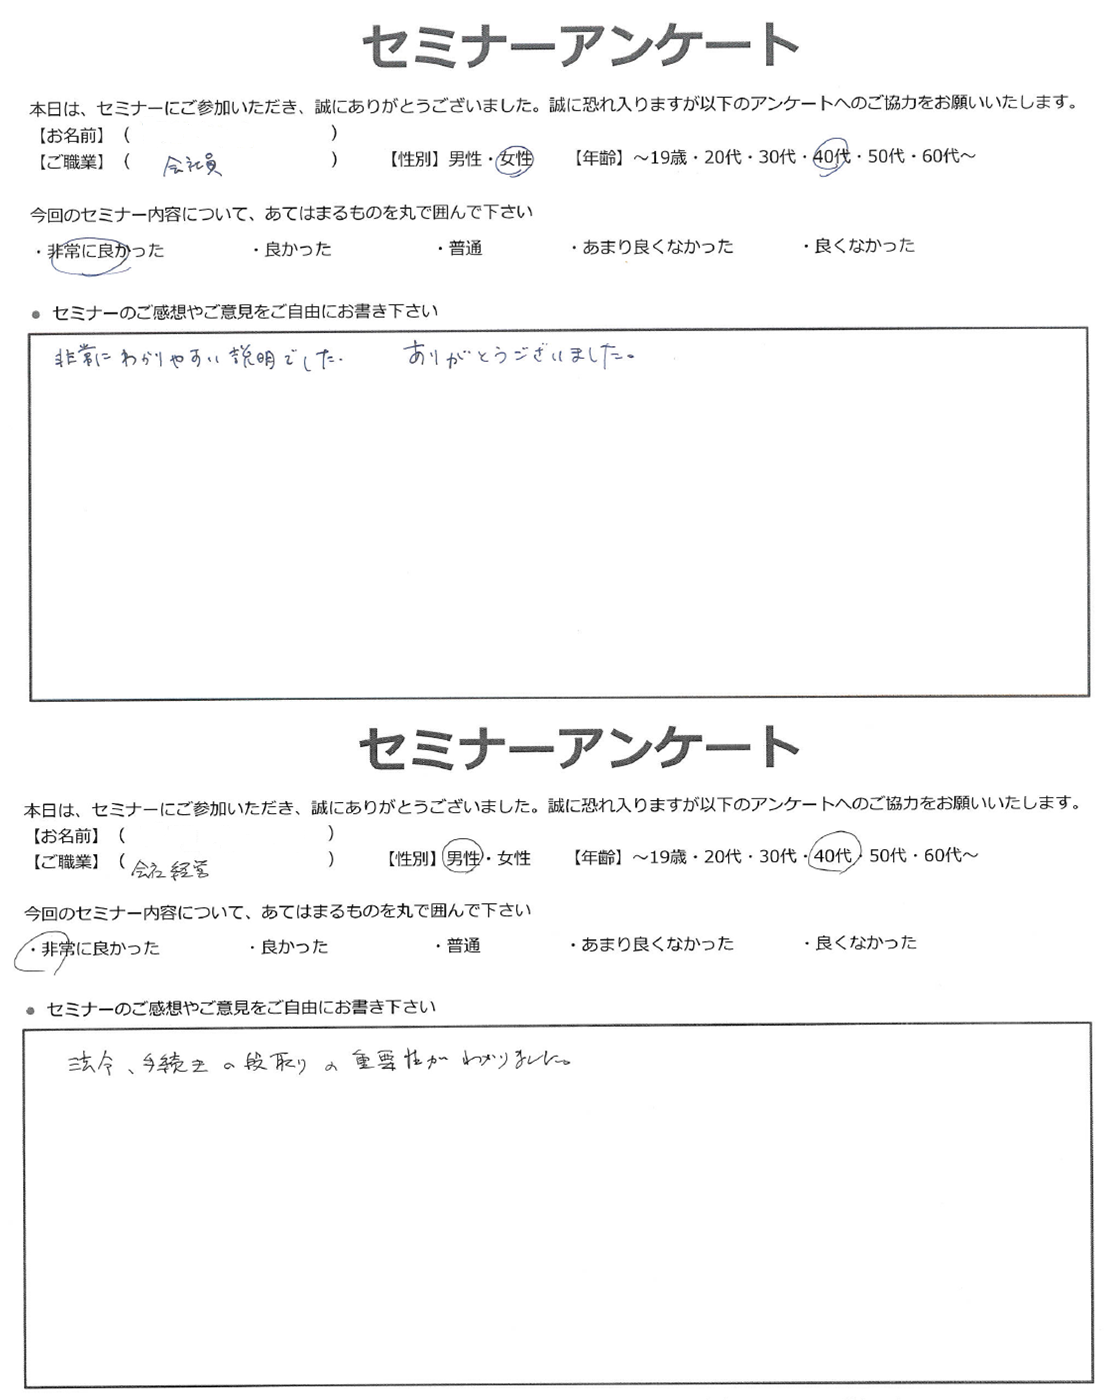 セミナーアンケート
本日は、セミナーにご参加いただき、誠にありがとうございました。誠に恐れ入りますが以下のアンケートへのご協力をお願いいたします。
【お名前】（　　　　　　　　　　　　）
【ご職業】（　会社員　）　【性別】男性・女性　【年齢】～19歳・20代・30代・40代・50代・60代～
今回のセミナー内容について、あてはまるものを丸で囲んで下さい
・非常に良かった　・良かった　・普通　・あまり良くなかった　・良くなかった
● セミナーのご感想やご意見をご自由にお書き下さい
非常にわかりやすい説明でした。　ありがとうございました。
セミナーアンケート
本日は、セミナーにご参加いただき、誠にありがとうございました。誠に恐れ入りますが以下のアンケートへのご協力をお願いいたします。
【お名前】（　　　　　　　　　　　　）
【ご職業】（　会社経営　）　【性別】男性・女性　【年齢】～19歳・20代・30代・40代・50代・60代～
今回のセミナー内容について、あてはまるものを丸で囲んで下さい
・非常に良かった　・良かった　・普通　・あまり良くなかった　・良くなかった
● セミナーのご感想やご意見をご自由にお書き下さい
法令、手続きの段取りの重要性がわかりました。